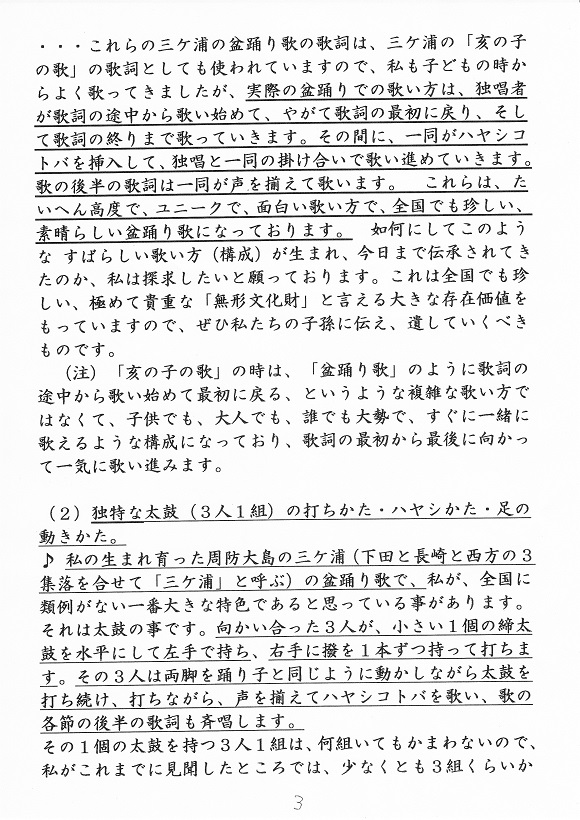 ・・・これらの三ケ浦の盆踊り歌の歌詞は、三ケ浦の「亥の子
の歌」の歌詞としても使われていますので、私も子どもの時か
らよく歌ってきましたが、実際の盆踊りでの歌い方は、独唱者
が歌詞の途中から歌い始めて、やがて歌詞の最初に戻り、そし
て歌詞の終りまで歌っていきます。その間に、一同がハヤシコ
トバを挿入して、独唱と一同の掛け合いで歌い進めていきます。
歌の後半の歌詞は一同が声を揃えて歌います。　これらは、た
いへん高度で、ユニークで、面白い歌い方で、全国でも珍しい、
素晴らしい盆踊り歌になっております。　如何にしてこのよう
な すばらしい歌い方（構成）が生まれ、今日まで伝承されてき
たのか、私は探求したいと願っております。これは全国でも珍
しい、極めて貴重な「無形文化財」と言える大きな存在価値を
もっていますので、ぜひ私たちの子孫に伝え、遺していくべき
ものです。
（注）「亥の子の歌」の時は、「盆踊り歌」のように歌詞の
途中から歌い始めて最初に戻る、というような複雑な歌い方で
はなくて、子供でも、大人でも、誰でも大勢で、すぐに一緒に
歌えるような構成になっており、歌詞の最初から最後に向かっ
て一気に歌い進みます。
（２）独特な太鼓（３人１組）の打ちかた・ハヤシかた・足の
動きかた。
♪ 私の生まれ育った周防大島の三ケ浦（下田と長崎と西方の３
集落を合せて「三ケ浦」と呼ぶ）の盆踊り歌で、私が、全国に
類例がない一番大きな特色であると思っている事があります。
それは太鼓の事です。向かい合った３人が、小さい１個の締太
鼓を水平にして左手で持ち、右手に撥を１本ずつ持って打ちま
す。その３人は両脚を踊り子と同じように動かしながら太鼓を
打ち続け、打ちながら、声を揃えてハヤシコトバを歌い、歌の
各節の後半の歌詞も斉唱します。
その１個の太鼓を持つ３人１組は、何組いてもかまわないので、
私がこれまでに見聞したところでは、少なくとも３組くらいか
3